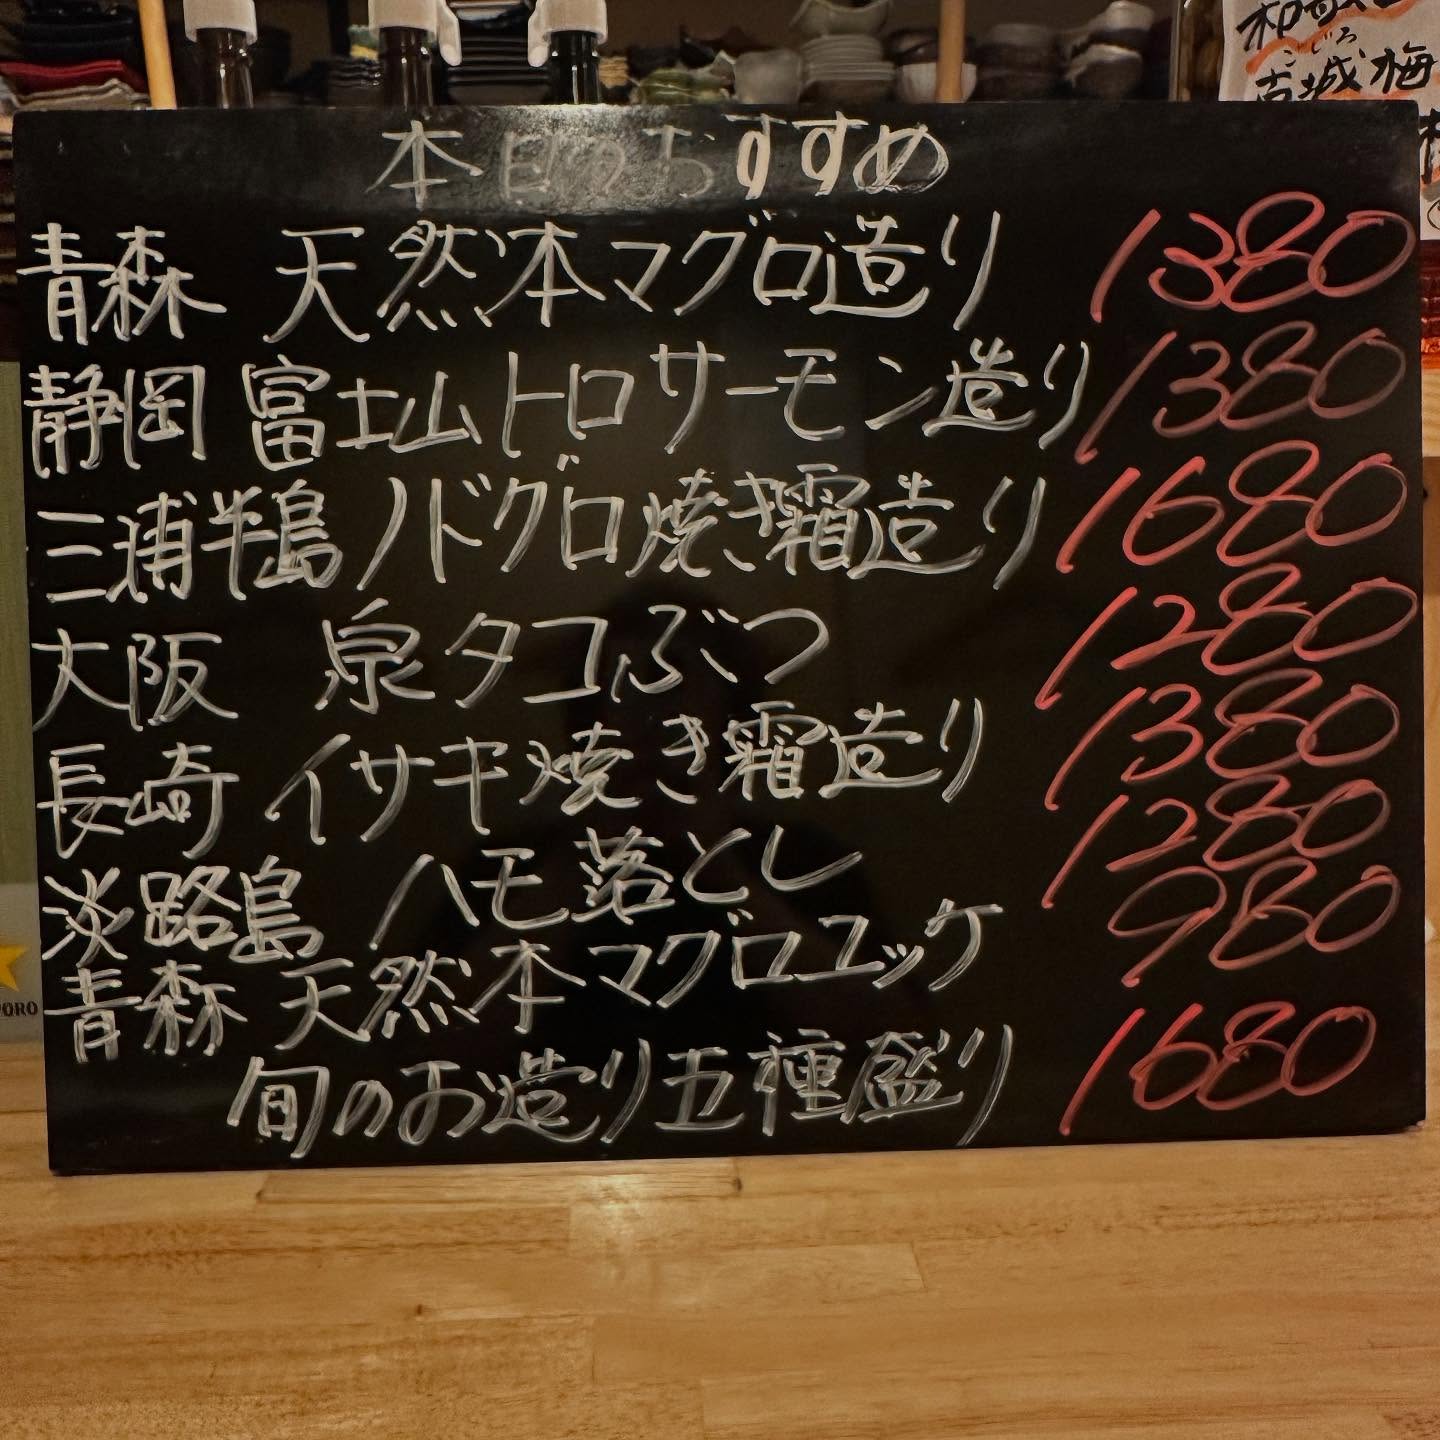 本日のおすすめ
青森 天然本マグロ造り 1380
静岡 富士山トロサーモン造り 1380
三浦半島 ノドグロ焼き霜造り 1680
大阪 泉タコぶつ 1280
長崎 イサキ焼き霜造り 1380
淡路島 ハモ落とし 1280
青森 天然本マグロユッケ 980
旬のお造り五種盛り 1680
こじろ
古城梅